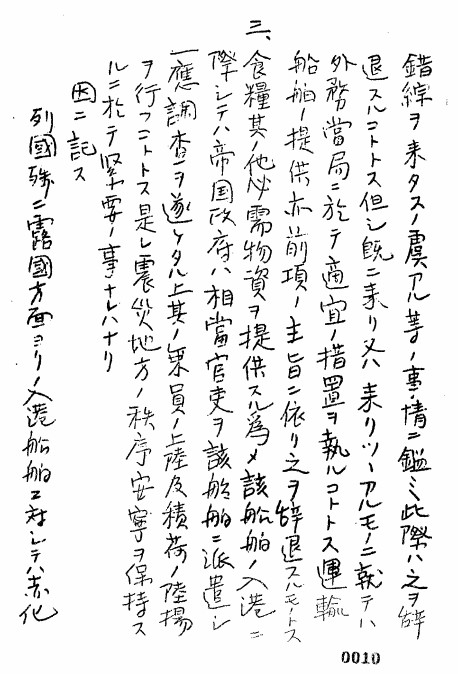 錯綜ヲ来タスノ虞アル等ノ事情ニ鑑ミ此際ハ之ヲ辞
退スルコトトス但シ既ニ来リ又ハ来リツツアルモノニ就テハ
外務當局ニ於テ適宜ノ措置ヲ執ルコトトス運輸
船舶ノ提供亦前項ノ主旨ニ依リ之ヲ辞退スルモノトス
三、食糧其ノ他必需物資ヲ提供スル為メ該船舶ノ入港ニ
際シテハ帝国政府ハ相當官吏ヲ該船舶ニ派遣シ
一應調査ヲ遂ケタル上其ノ乗員ノ上陸及積荷ノ陸揚
ヲ行フコトトス是レ震災地方ノ秩序安寧ヲ保持ス
ルニ於テ緊要ノ事ナレハナリ
因ニ記ス
列國殊ニ露國方面ヨリノ入港船舶ニ対シテハ赤化
0010